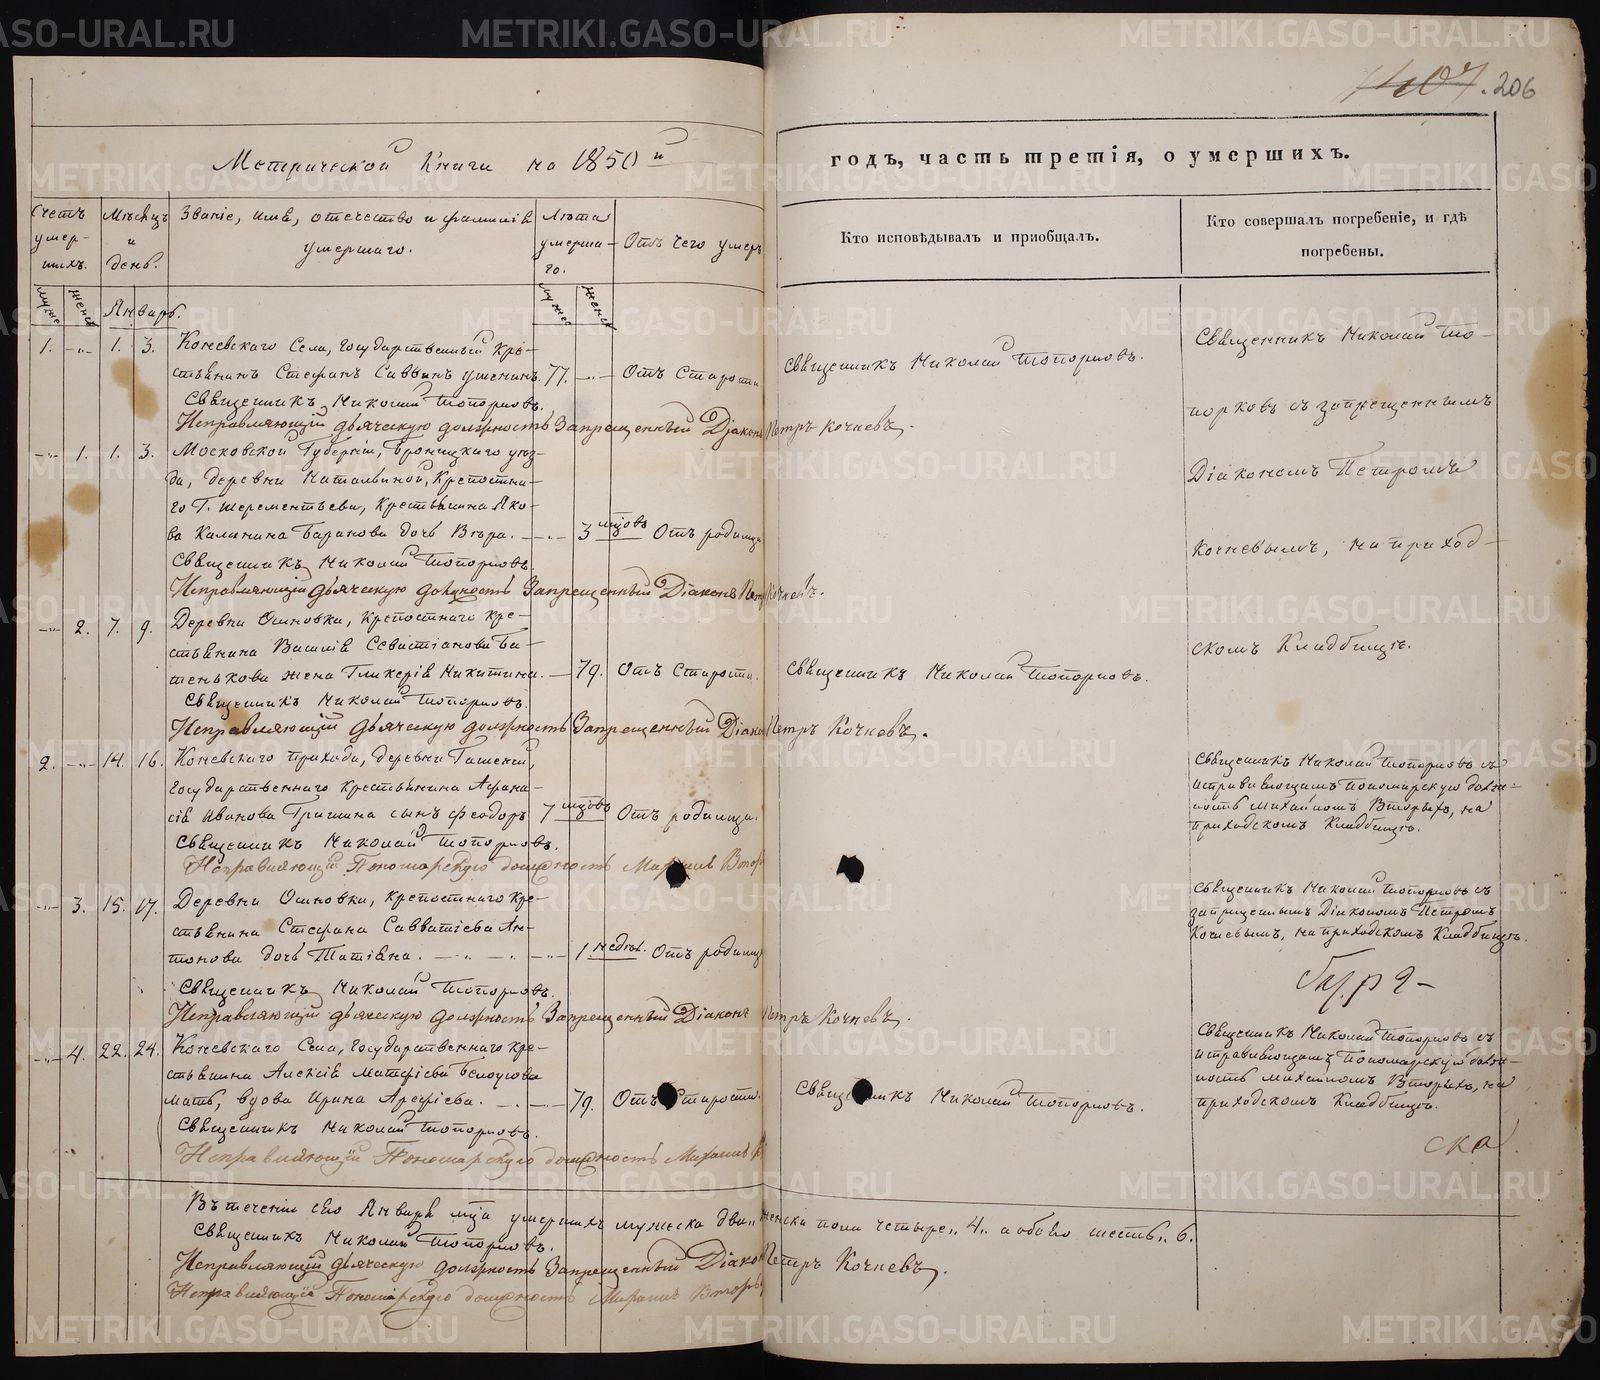 206
Метрической Книги на 1850й
годъ, часть третія, о умершихъ.
Счетъ умер- шихъ.
Мѣсяцъ и день.
Званіе, имя, отечество и фамилія умершаго.
Лѣта умерша- го.
Отъ чего умеръ
Кто исповѣдывалъ и пріобщалъ.
Кто совершалъ погребеніе, и гдѣ погребены.
Январь.
1. -„- 1. 3. Коневскаго Села, Государственный Кре-
стьянинъ Стефанъ Саввинъ 77. -„- Отъ Старости
Священникъ Николай Топорковъ.
Исправляющій дьяческую должность Запрещенный Діаконъ Петръ Кочневъ.
-„- 1. 1. 3. Московской Губерніи, Бронницкаго уѣз-
да, деревни Натальиной, Крепостна-
го Г. Шереметьева, Крестьянина Яко-
ва Калинина Баранова дочь Вѣра. -„- 3 мцовъ Отъ родимца
Священникъ Николай Топорковъ.
Исправляющій дьяческую должность Запрещенный Діаконъ Петръ Кочневъ.
-„- 2. 7. 9. Деревни Осиновки, Крепостнаго Кре-
стьянина Василія Севастіанова Ба-
тенькова жена Гликерія Никитина. - 79. Отъ Старости.
Священникъ Николай Топорковъ.
Исправляющій дьяческую должность Запрещенный Діаконъ Петръ Кочневъ.
2. -„- 14. 16. Коневскаго прихода, деревни
Государственнаго Крестьянина Афана-
сія Иванова Гришина сынъ Феодоръ 7 мцовъ Отъ родимца.
Священникъ Николай Топорковъ.
Исправляющій Пономарскую должность Михаилъ Втор
-„- 3. 15. 17. Деревни Осиновки, Крепостнаго Кре-
стьянина Стефана Савватіева Ан-
тонова дочь Татіана. -„- 1 недѣл. Отъ родимц
Священникъ Николай Топорковъ.
Исправляющій дьяческую должность Запрещенный Діаконъ Петръ Кочневъ.
-„- 4. 22. 24. Коневскаго Села, Государственнаго Кре-
стьянина Алексія Матфіева Белоусова
мать, вдова Ирина Арефіева. - 79. Отъ Старости.
Священникъ Николай Топорковъ.
Исправляющій Пономарскую должность Михаилъ В
Въ теченіи сего Января мца умершихъ мужеска два„ женска пола четыре„ 4„ а обоего шесть„ 6.
Священникъ Николай Топорковъ.
Исправляющій дьяческую должность Запрещенный Діаконъ Петръ Кочневъ.
Исправляющій Пономарскую должность Михаилъ Вторы
Священникъ Николай Топорковъ.
Священникъ Николай Топорковъ.
Священникъ Николай Топорковъ.
Священникъ Николай То-
порковъ съ запрещеннымъ
Діакономъ Петромъ
Кочневымъ, на приход-
скомъ Кладбищѣ.
Священникъ Николай Топорковъ съ
исправляющимъ пономарскую долж-
ность Михаиломъ Вторыхъ, на
приходскомъ Кладбищѣ.
Священникъ Николай Топорковъ съ
запрещеннымъ Діакономъ Петромъ
Кочневымъ, на приходскомъ Кладбищѣ.
Священникъ Николай Топорковъ съ
исправляющимъ пономарскую долж-
ность Михаиломъ Вторыхъ, на
приходскомъ Кладбищѣ.
ска
METRIKI.GASO-URAL.RU